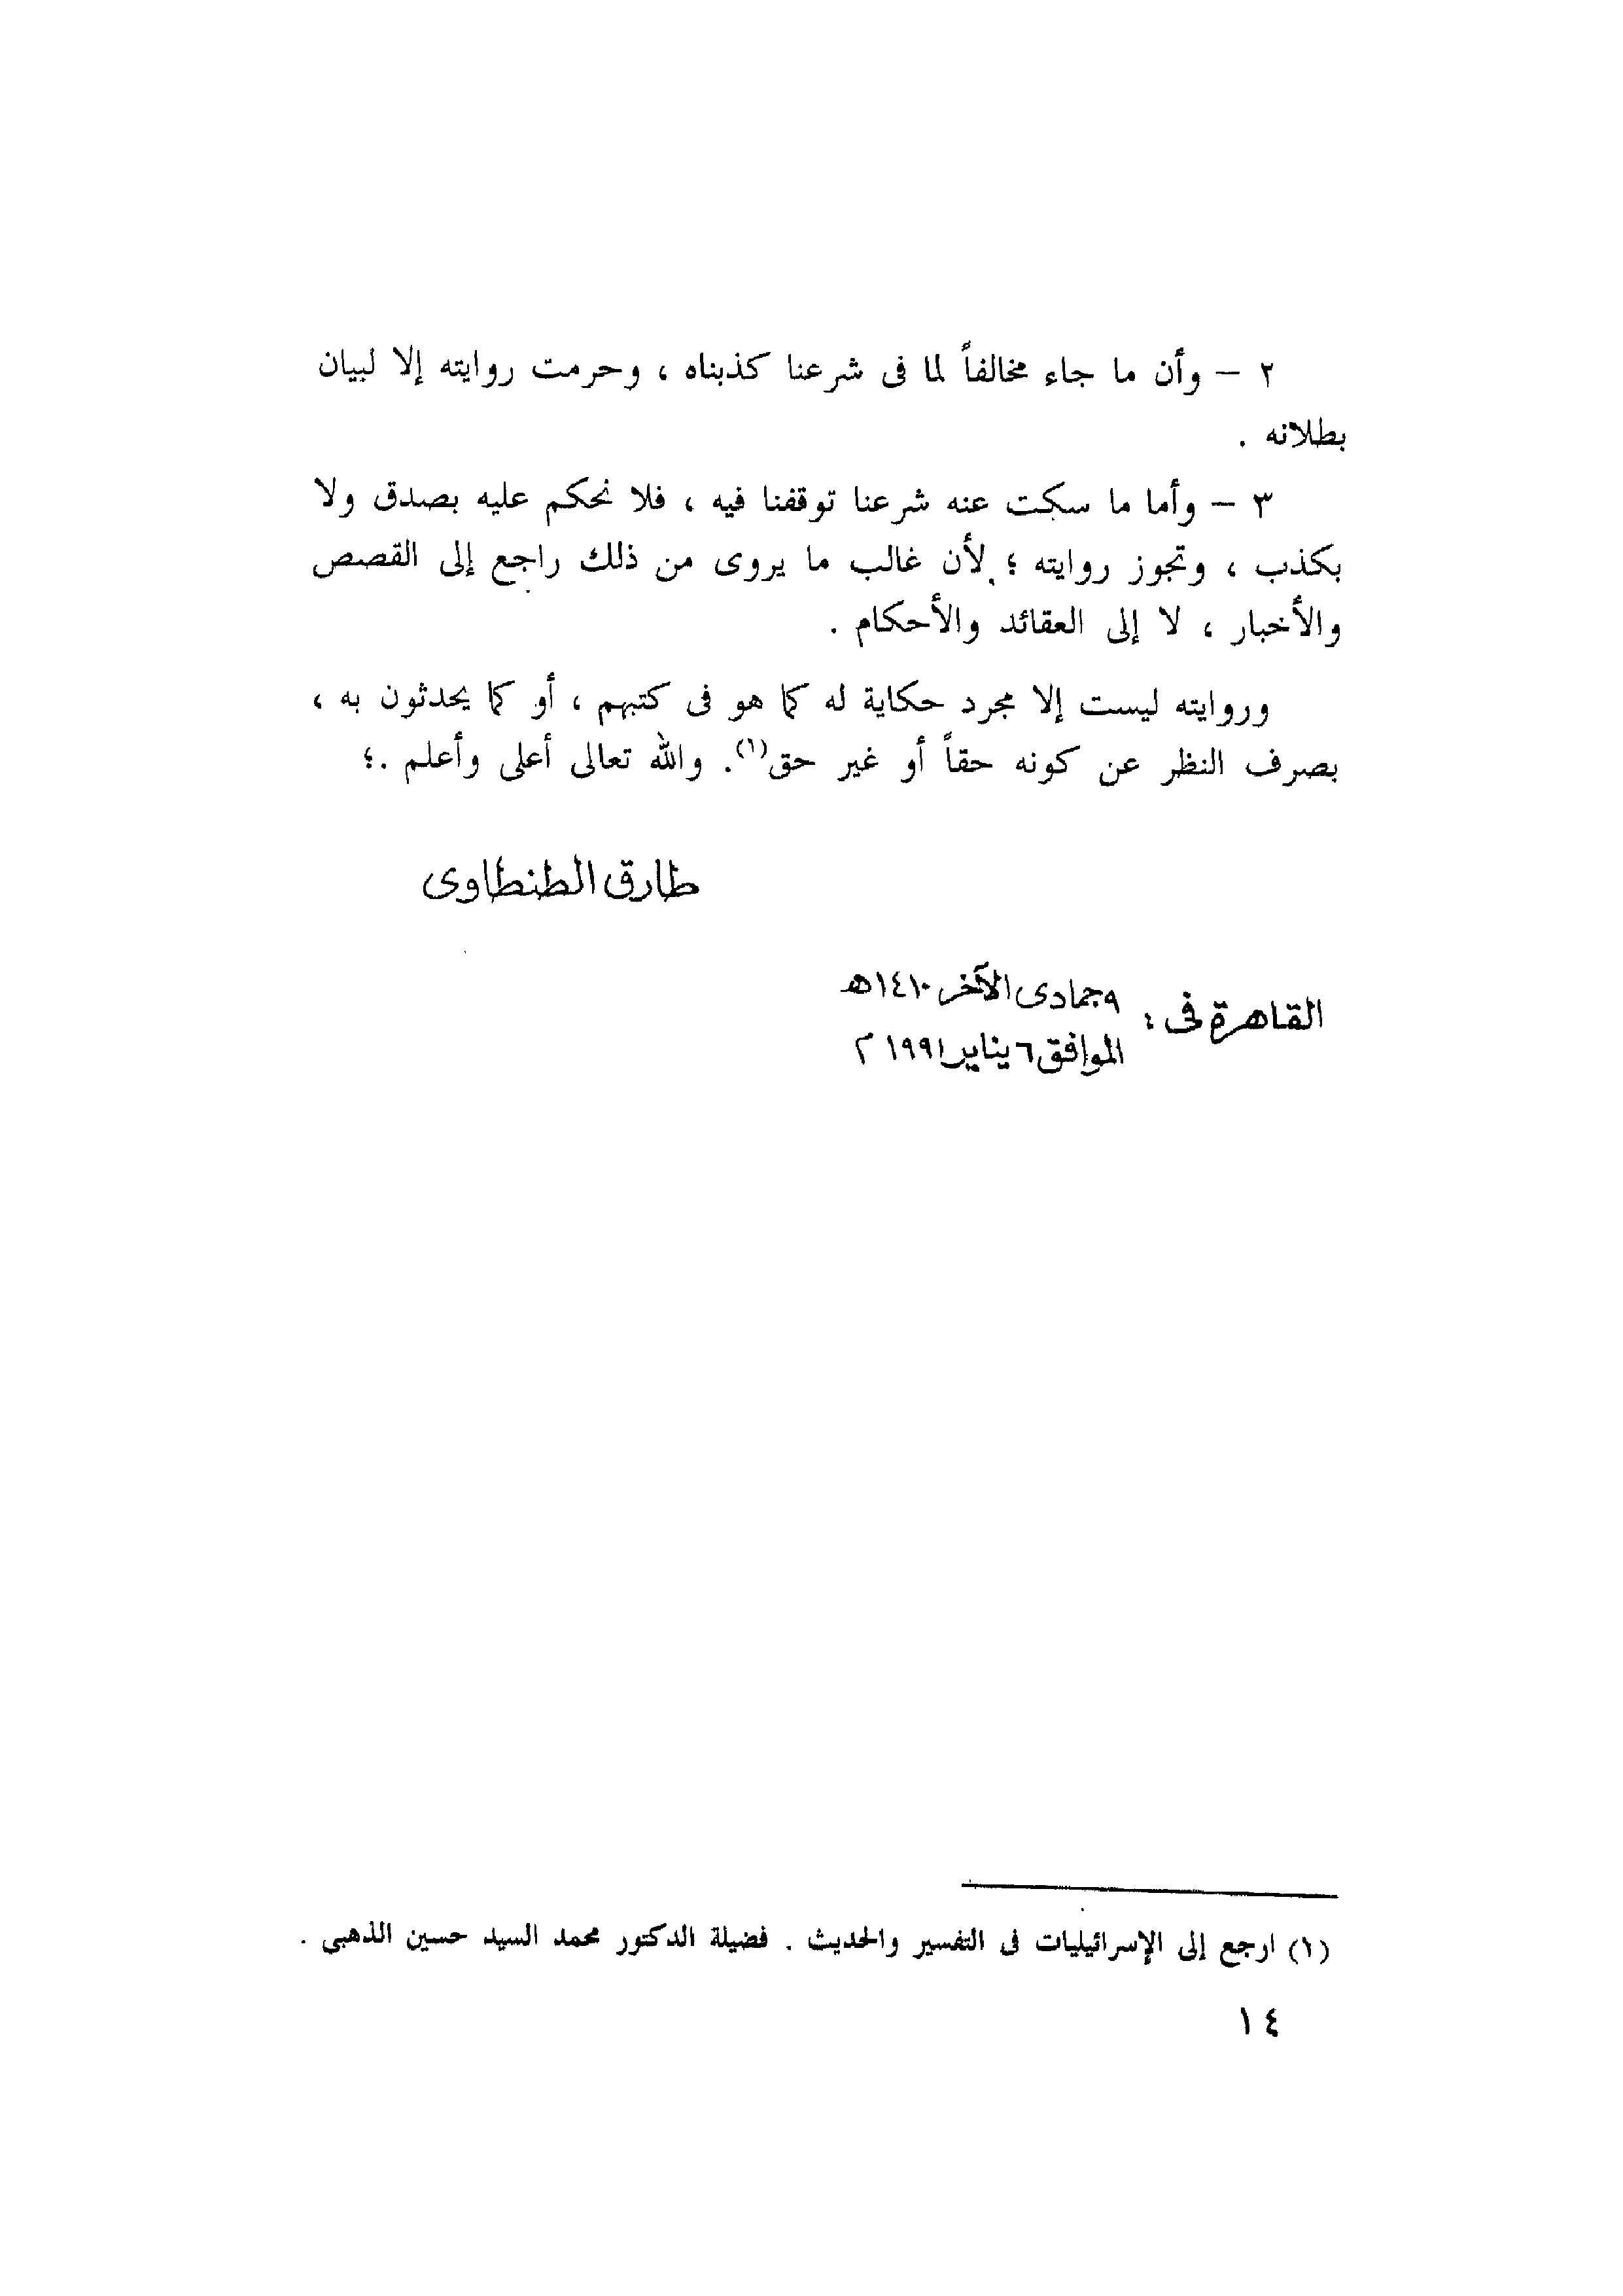 ٢ – وأن ما جاء مخالفاً لما فى شرعنا كذبناه ، وحرمت روايته إلا لبيان
بطلانه .
٣ – وأما ما سكت عنه شرعنا توقفنا فيه ، فلا نحكم عليه بصدق ولا
بكذب ، وتجوز روايته ؛ لأن غالب ما يروى من ذلك راجع إلى القصص
والأخبار ، لا إلى العقائد والأحكام .
وروايته ليست إلا مجرد حكاية له كما هو فى كتبهم ، أو كما يحدثون به ،
بصرف النظر عن كونه حقاً أو غير حق(١). والله تعالى أعلى وأعلم .؛
طارق الطنطاوى
القاهرة فى : ٩ جمادى الآخر ١٤١٠هـ
الموافق ٦ يناير ١٩٩١ م
(١) ارجع إلى الإسرائيليات فى التفسير والحديث . فضيلة الدكتور محمد السيد حسين الذهبى .
١٤